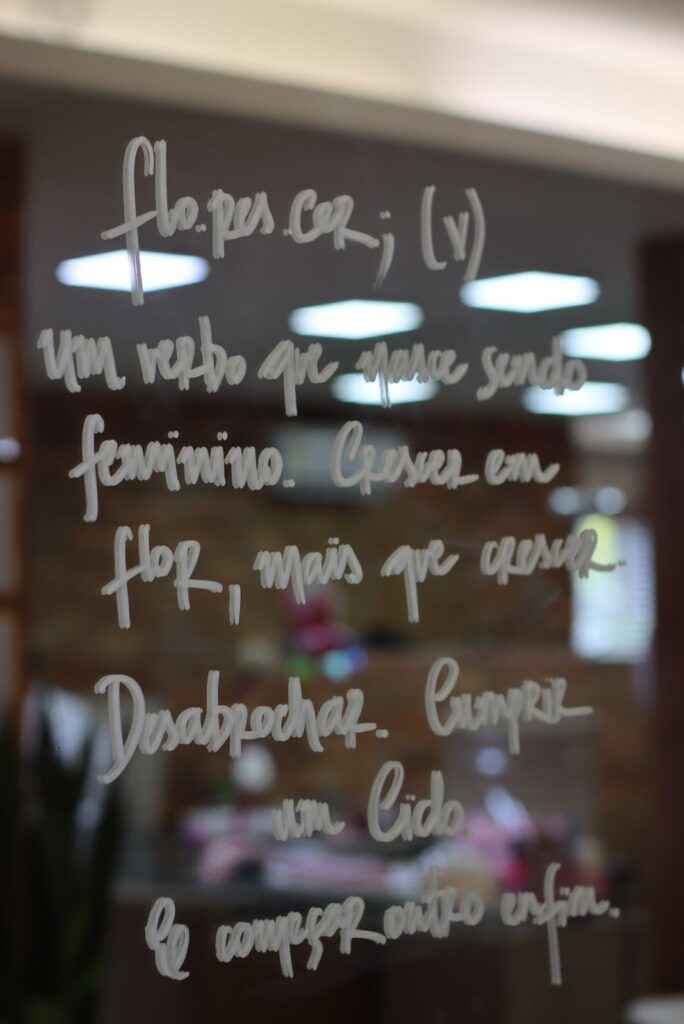 flo.res.cer; (v)
um verbo que nasce sendo
feminino. Crescer em
flor, mais que crescer.
Desabrochar. Cumprir
um Ciclo
E começar outro enfim.